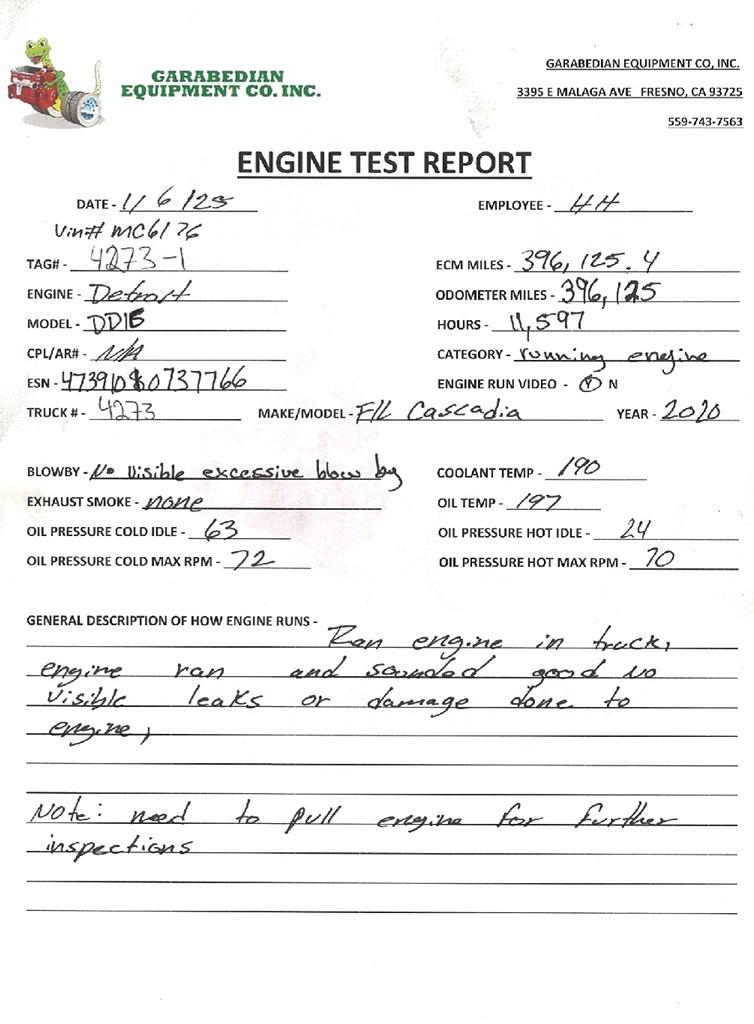 GARABEDIAN
EQUIPMENT CO. INC.
GARABEDIAN EQUIPMENT CO, INC.
3395 E MALAGA AVE FRESNO, CA 93725
559-743-7563
ENGINE TEST REPORT
DATE - 1/6/25 EMPLOYEE - HH
Vin# MC6176
TAG# - 4273-1 ECM MILES - 396,125.4
ENGINE - Detroit ODOMETER MILES - 396,125
MODEL - DD15 HOURS - 11,597
CPL/AR# - N/A CATEGORY - running engine
ESN - ENGINE RUN VIDEO - Y N
TRUCK # - 4273 MAKE/MODEL - F/L Cascadia YEAR - 2020
BLOWBY - No visible excessive blow by COOLANT TEMP - 190
EXHAUST SMOKE - none OIL TEMP - 197
OIL PRESSURE COLD IDLE - 63 OIL PRESSURE HOT IDLE - 24
OIL PRESSURE COLD MAX RPM - 72 OIL PRESSURE HOT MAX RPM - 70
GENERAL DESCRIPTION OF HOW ENGINE RUNS - Ran engine in truck,
engine ran and sounded good no
visible leaks or damage done to
engine,
Note: need to pull engine for further
inspections